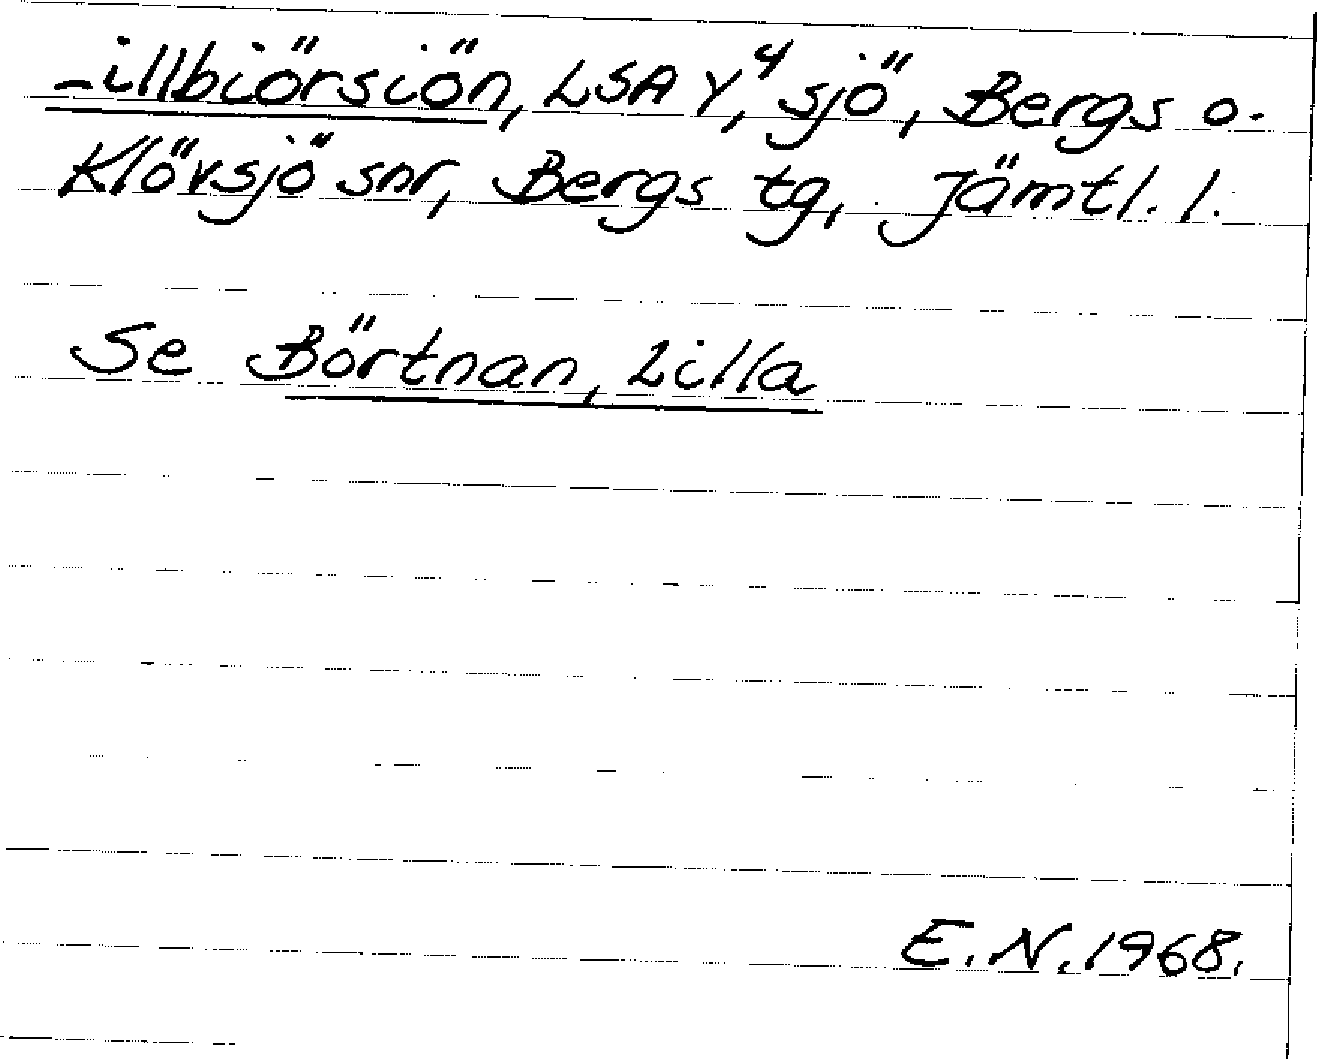 -illbiörsiön, LSA Y,⁴ sjö, Bergs o.
Klövsjö snr, Bergs tg, Jämtl. l.
Se Börtnan, Lilla
E.N. 1968.